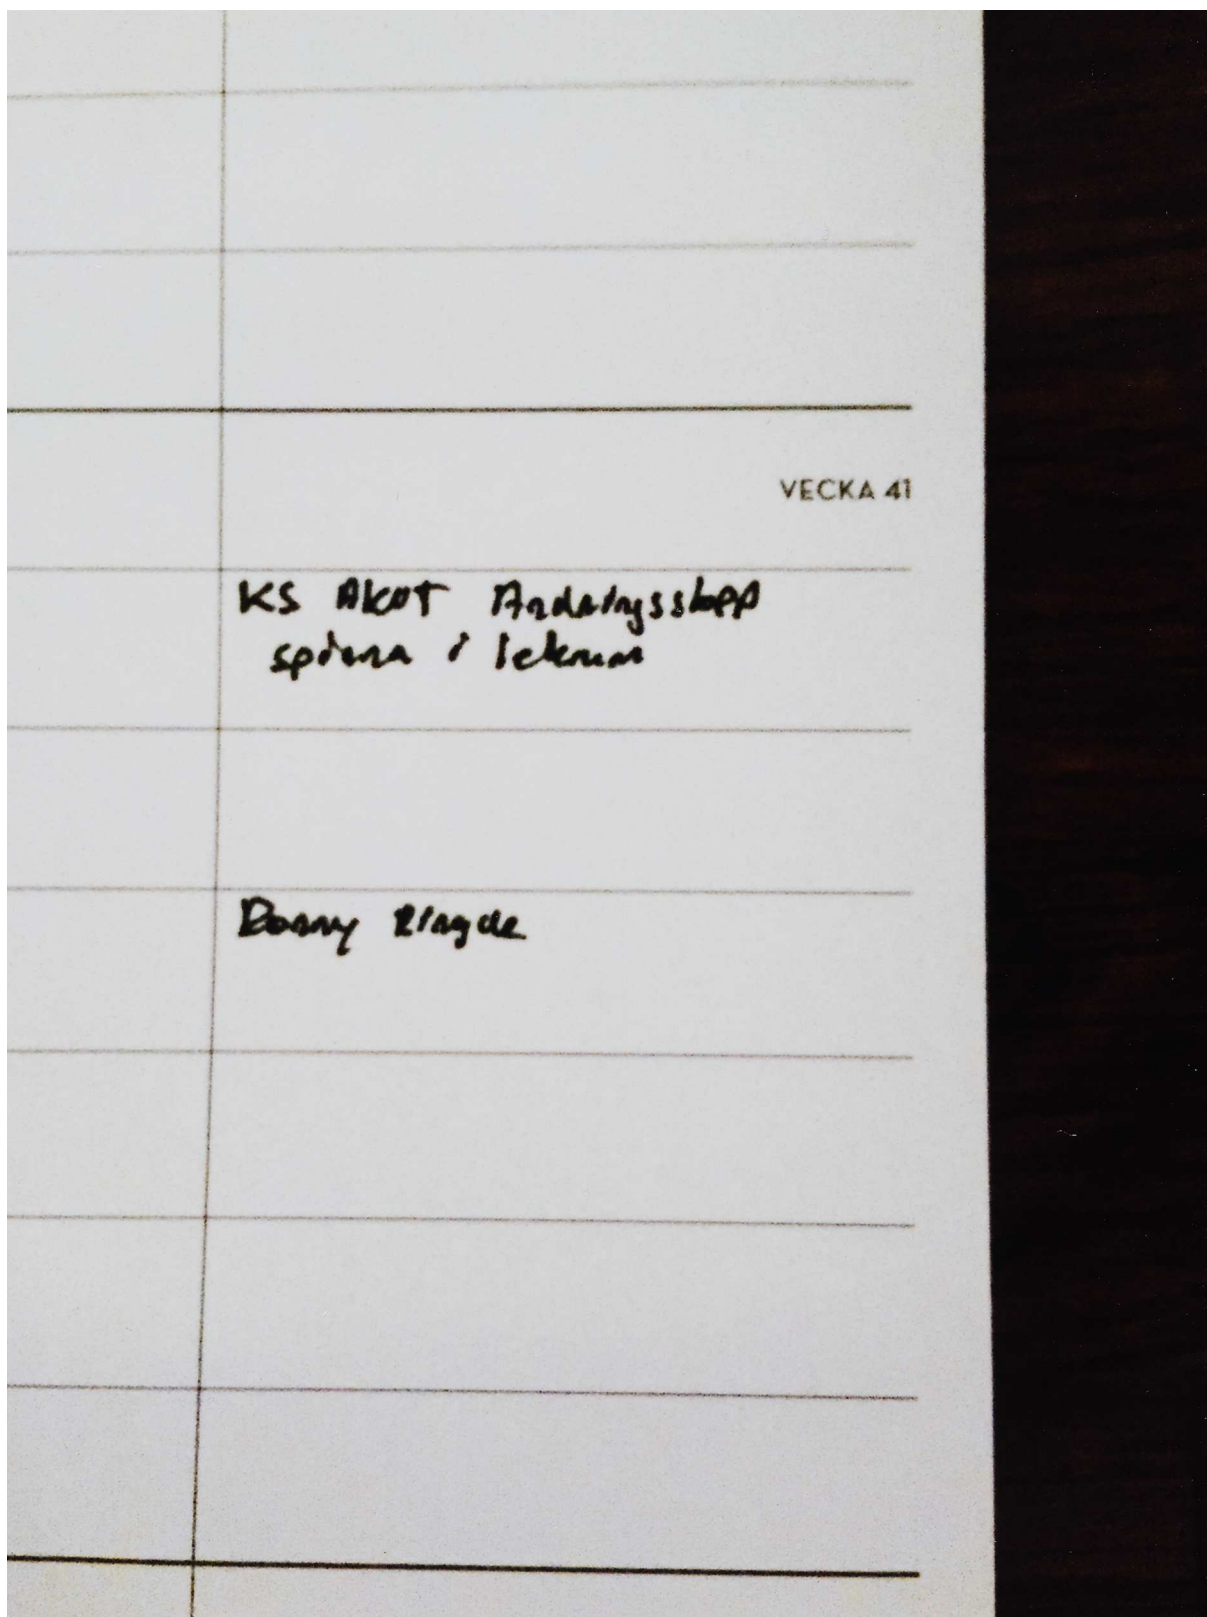 VECKA 41
KS AKUT Andningsstopp
spinna i lekrum
Ronny Ringde